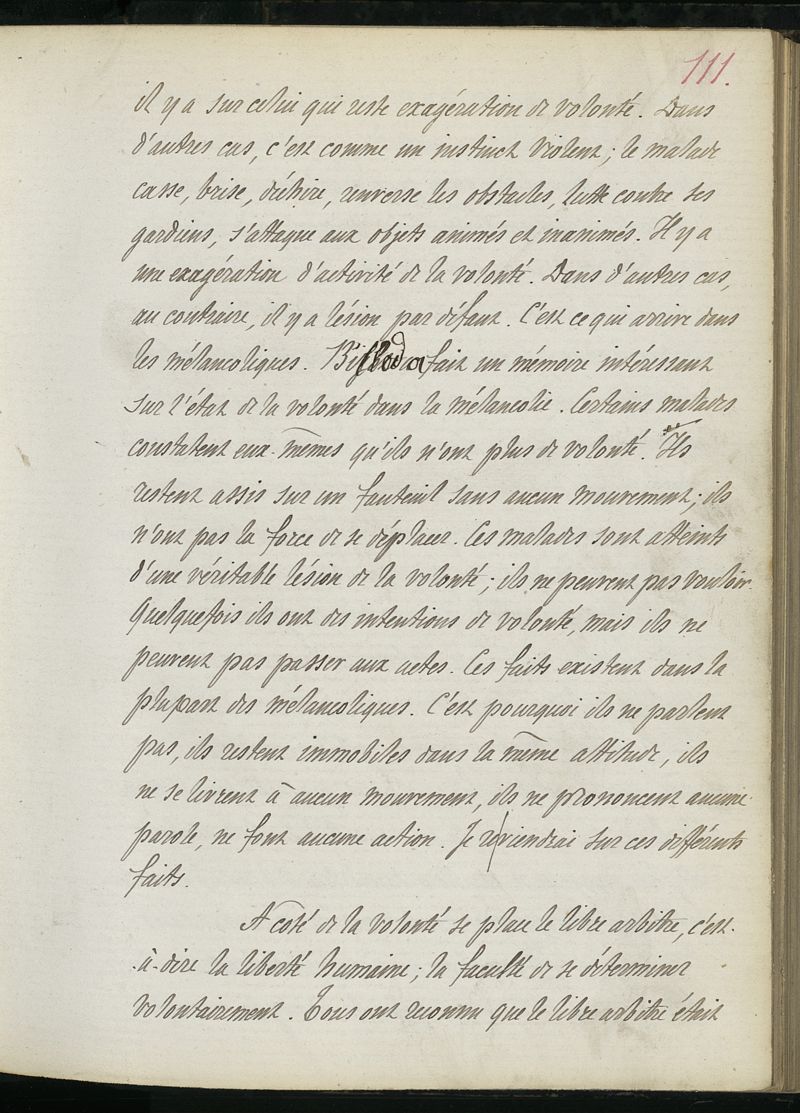 111.
il y a sur celui qui reste exagération de volonté. Dans
d'autres cas, c'est comme un instinct violent; le malade
casse, brise, déchire, renverse les obstacles, lutte contre ses
gardiens, s'attaque aux objets animés et inanimés. Il y a
une exagération d'activité de la volonté. Dans d'autres cas,
au contraire, il y a lésion par défaut. C'est ce qui arrive dans
les mélancoliques. a fait un mémoire intéressant
sur l'état de la volonté dans la mélancolie. Certains malades
constatent eux-mêmes qu'ils n'ont plus de volonté. Ils
restent assis sur un fauteuil sans aucun mouvement; ils
n'ont pas la force de se déplacer. Ces malades sont atteints
d'une véritable lésion de la volonté; ils ne peuvent pas vouloir.
Quelquefois ils ont des intentions de volonté, mais ils ne
peuvent pas passer aux actes. Ces faits existent dans la
plupart des mélancoliques. C'est pourquoi ils ne parlent
pas, ils restent immobiles dans la même attitude, ils
ne se livrent à aucun mouvement, ils ne prononcent aucune
parole, ne font aucune action. Je reviendrai sur ces différents
faits.
A coté de la volonté se place le libre arbitre, c'est-
-à-dire la liberté humaine; la faculté de se déterminer
volontairement. Tous ont reconnu que le libre arbitre était